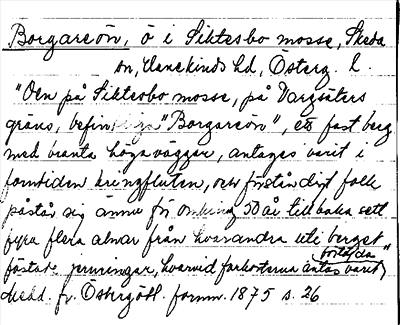 Borgareön, ö i Siktesbo mosse, Skeda
sn, Hanekinds hd, Österg. l.
"Den på Siktesbo mosse, på Vargsäters
gräns, "Borgareön", ett fast berg
med branta höga väggar, antages varit i
forntiden kringfluten, och folk
påstår sig ännu för omkring 50 år tillbaka sett
flera alnar från hvarandra uti berget
fästade jernringar, hvarvid farkosterna antas varit fästade"
Medd. fr. Östergötl. fornm. 1875 s. 26